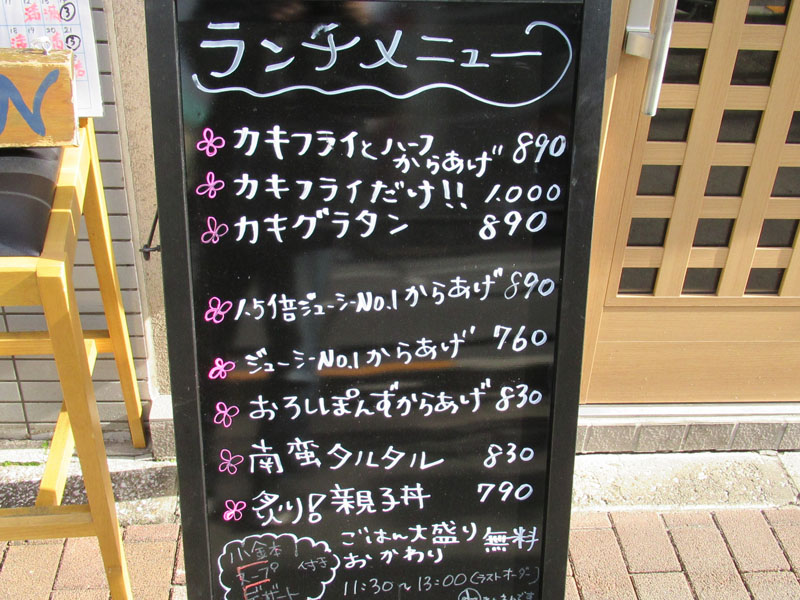 ランチメニュー
カキフライとハーフからあげ 890
カキフライだけ!! 1.000
カキグラタン 890
1.5倍ジューシーNo.1からあげ 890
ジューシーNo.1からあげ 760
おろしぽんずからあげ 830
南蛮タルタル 830
炙り!親子丼 790
ごはん大盛り 無料
おかわり
小鉢
スープ
デザート
11:30〜13:00(ラストオーダー)
N